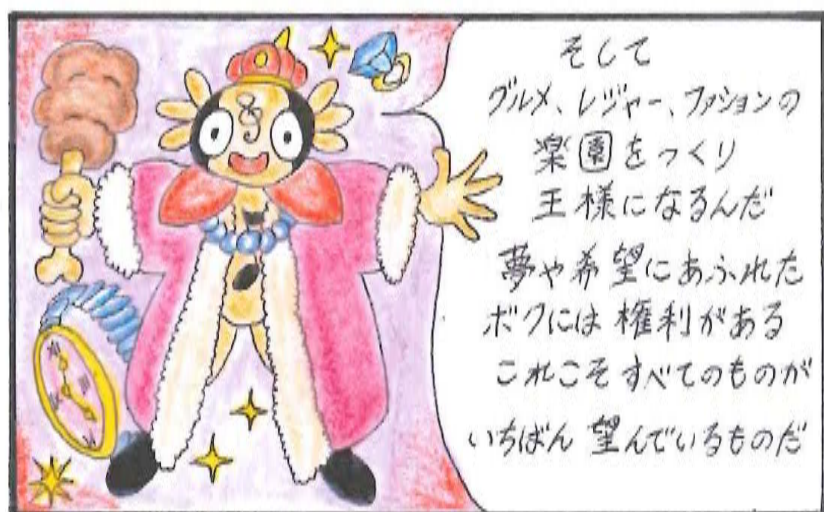 そして
グルメ、レジャー、ファションの
楽園をつくり
王様になるんだ
夢や希望にあふれた
ボクには権利がある
これこそすべてのものが
いちばん望んでいるものだ